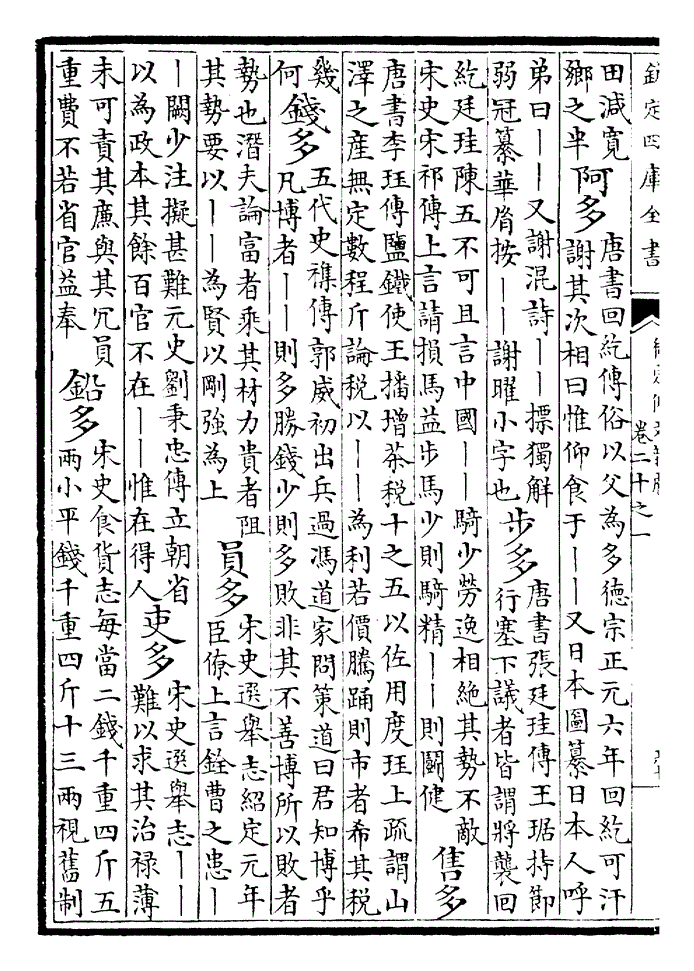 欽定四庫全書
卷二十之一
田減寬
鄉之半
阿多
唐書回紇傳俗以父為多德宗正元六年回紇可汗
謝其次相曰惟仰食于——又日本圖纂日本人呼
弟曰——又謝混詩——標獨解
弱冠纂華胄按——謝曜小字也
步多
唐書張廷珪傳王琚持節
行塞下議者皆謂將襲回
紇廷珪陳五不可且言中國——騎少勞逸相絕其勢不敵
宋史宋祁傳上言請損馬益步馬少則騎精——則鬬健
售多
唐書李珏傳鹽鐵使王播增茶税十之五以佐用度珏上疏謂山
澤之產無定數程斤論税以——為利若價騰踊則市者希其税
幾
何
錢多
五代史襍傳郭威初出兵過馮道家問策道曰君知博乎
凡博者——則多勝錢少則多敗非其不善博所以敗者
勢也潛夫論富者乘其材力貴者阻
其勢要以——為賢以剛強為上
員多
宋史選舉志紹定元年
臣僚上言銓曹之患—
—闕少注擬甚難元史劉秉忠傳立朝省
以為政本其餘百官不在——惟在得人
吏多
宋史選舉志——
難以求其治禄薄
未可責其廉與其冗員
重費不若省官益奉
鉛多
宋史食貨志每當二錢千重四斤五
兩小平錢千重四斤十三兩視舊制